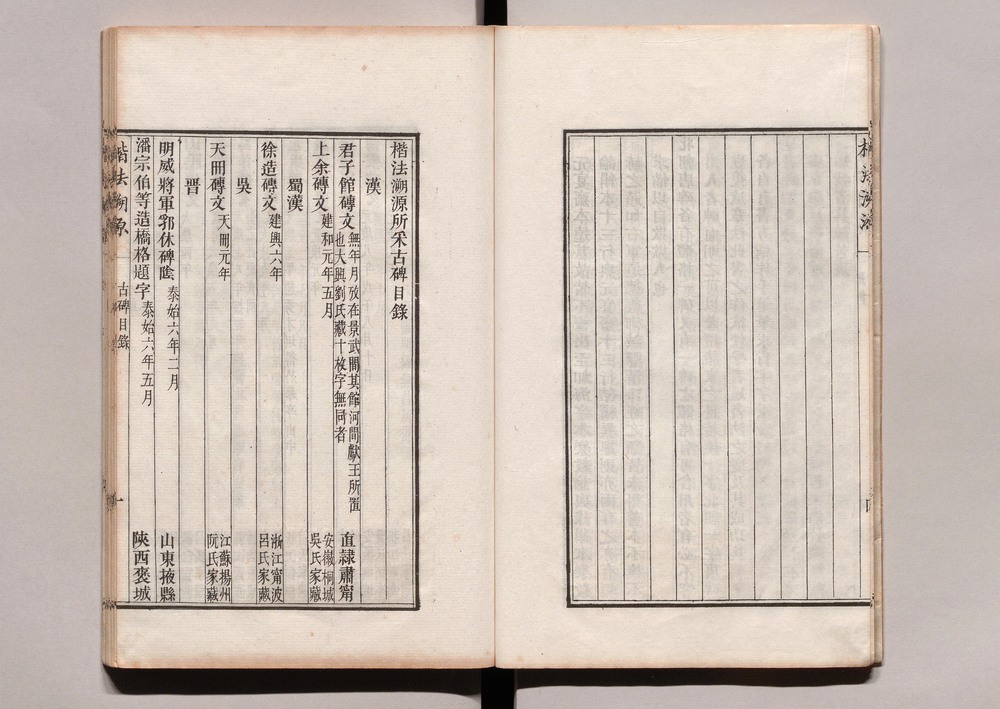 楷法溯源所采古碑目錄
漢
君子館磚文
無年月攷在景武間其館河間獻王所置
也大興劉氏藏十枚字無同者
直隸肅甯
上余磚文
建和元年五月
安徽桐城
吳氏家藏
蜀漢
徐造磚文
建興六年
浙江甯波
呂氏家藏
吳
天冊磚文
天冊元年
江蘇揚州
阮氏家藏
晉
明威將軍郛休碑陰
泰始六年二月
山東掖縣
潘宗伯等造橋格題字
泰始六年五月
陝西褒城
楷法溯原
古碑目錄
一